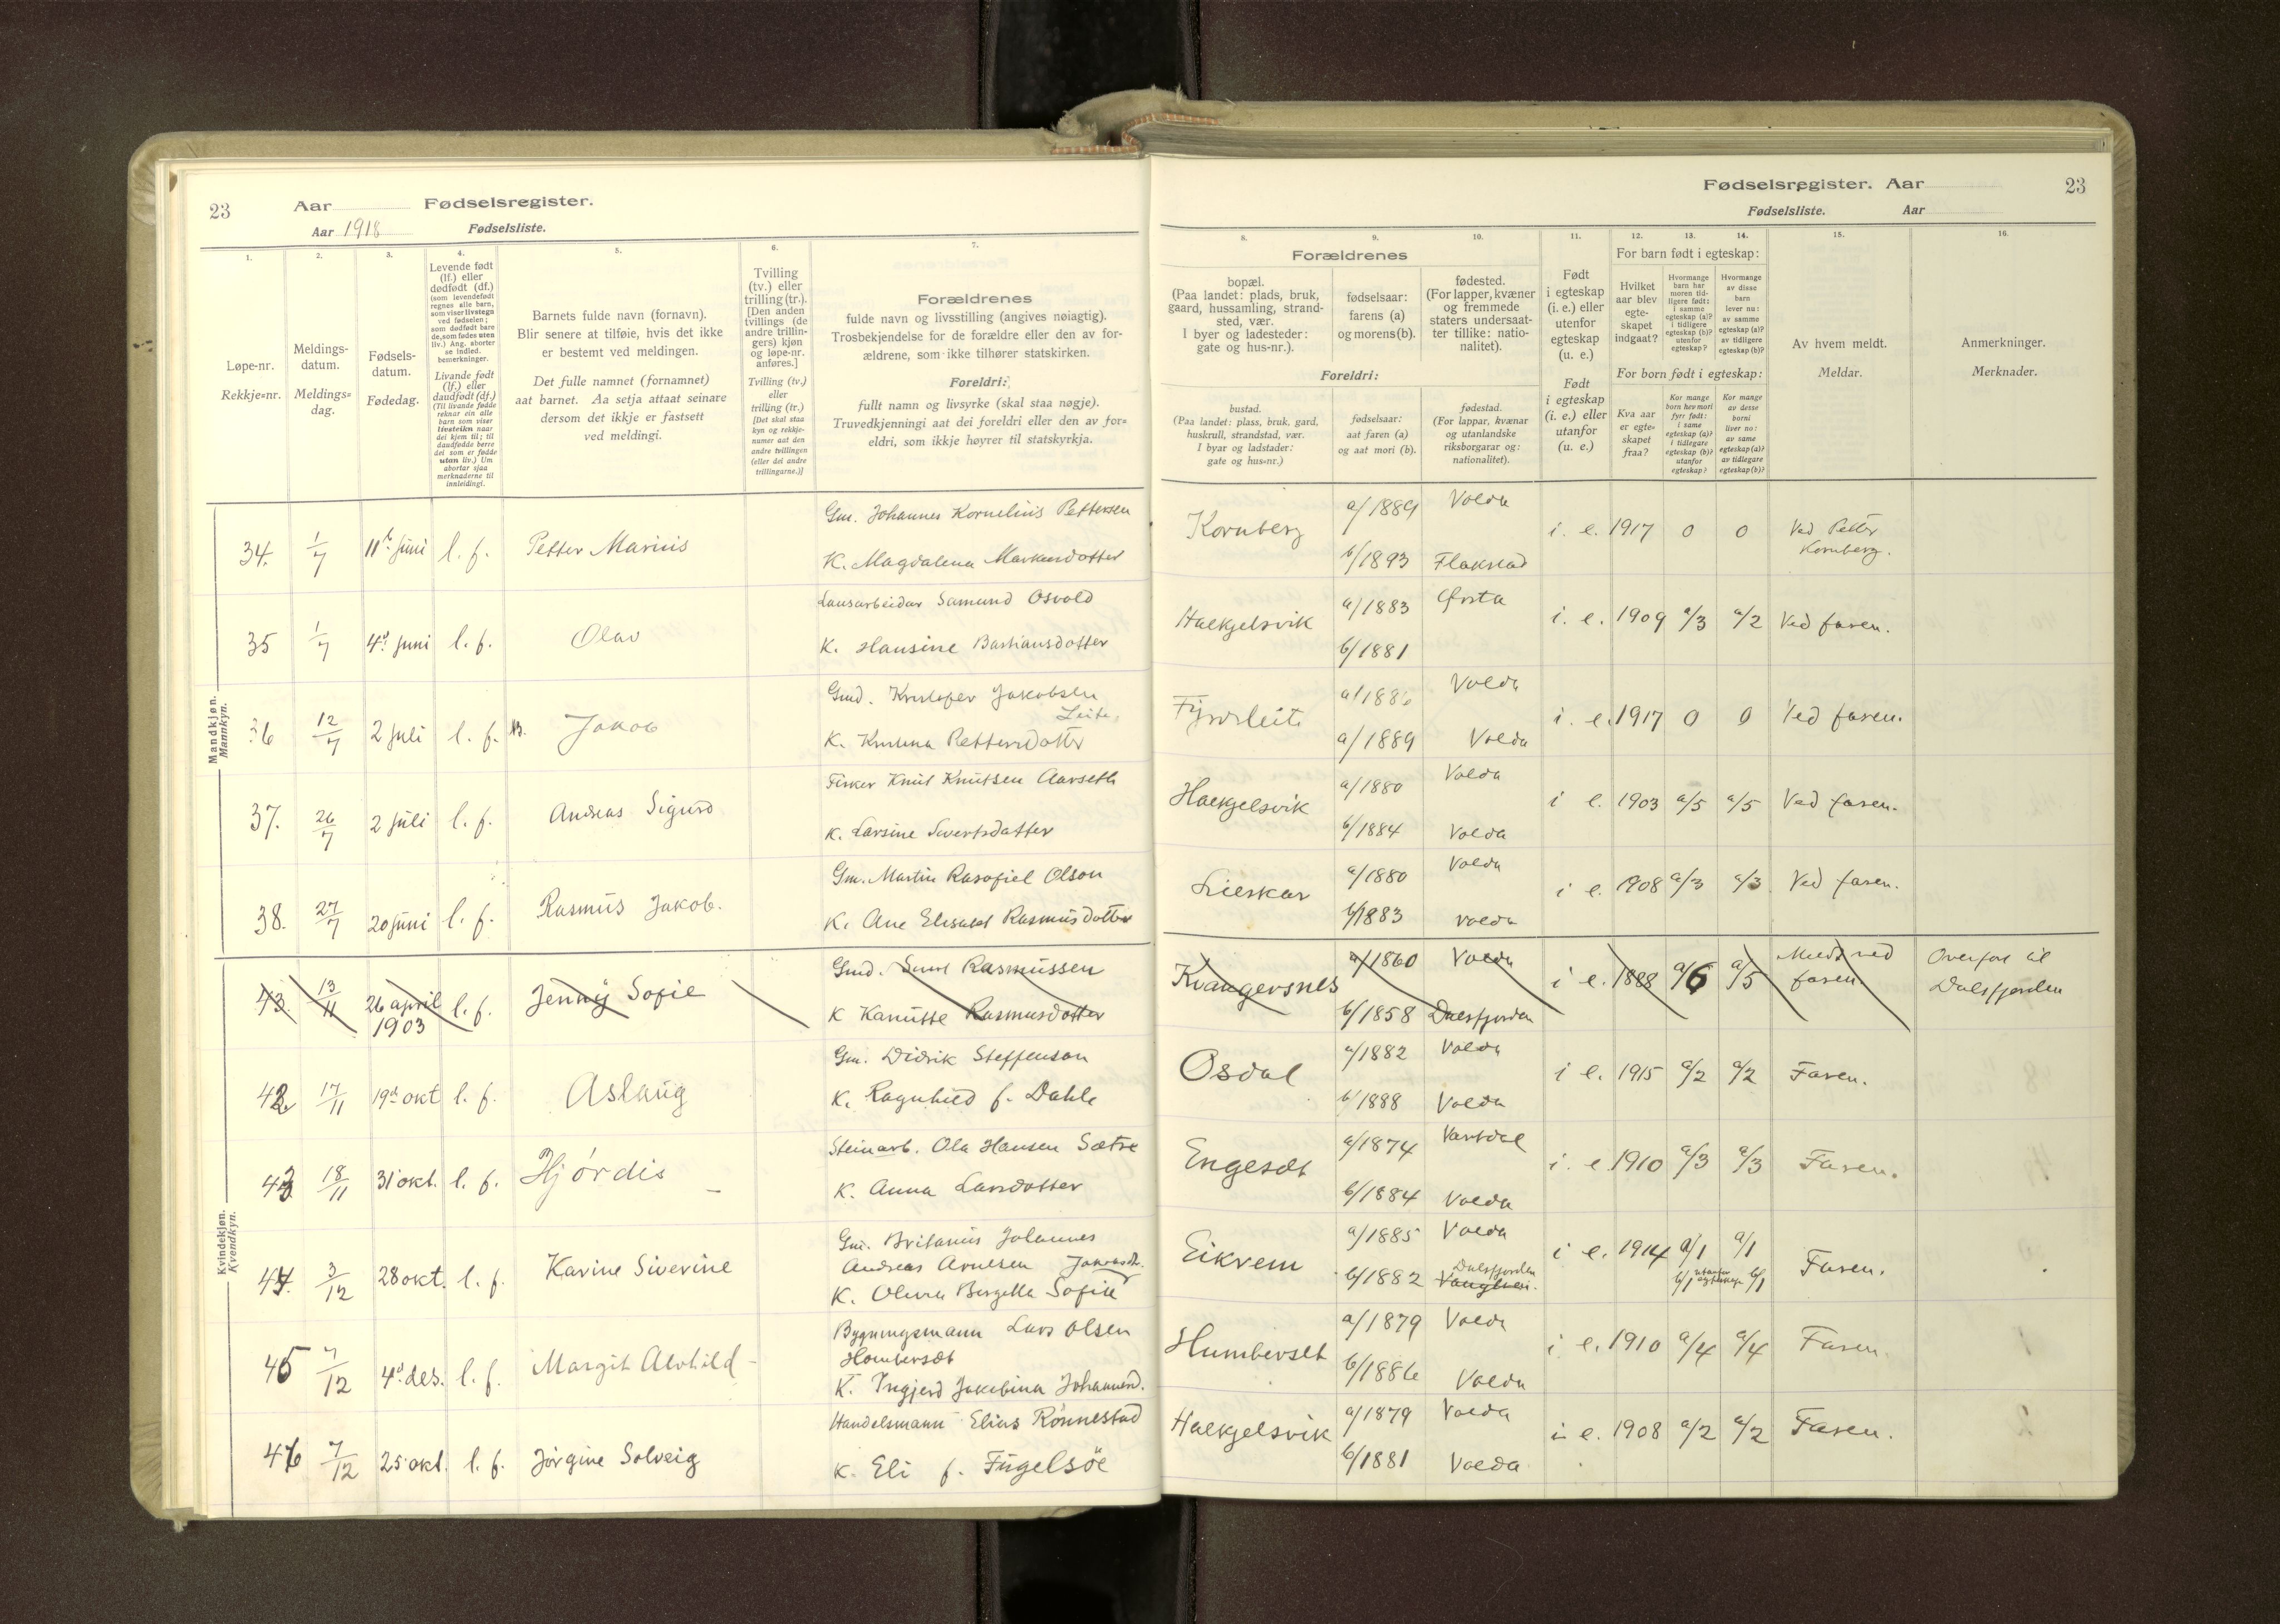 23
Aar
Fødselsregister.
Aar 1918
Fødselsliste.
Fødselsregister. Aar
23
Fødselsliste.
Aar
1.
Løpe-nr.
Rekkje=nr.
2.
Meldings-
datum.
Meldings=
dag.
3.
Fødsels-
datum.
Fødedag.
4.
Levende født
(lf.) eller
dødfødt (df.)
(som levendefødt
regnes alle barn,
som viser livstegn
ved fødselen;
som dødfødt bare
de, som fødes uten
liv.) Ang. aborter
se indled.
bemerkninger.
Livande født
(lf.) eller
daudfødt (df.)
(Til livande fødde
reknar ein alle
barn som viser
livsteikn naar
dei kjem til; til
daudfødde berre
dei som er fødde
utan liv.) Um
abortar sjaa
merknaderne til
innleidingi.
5.
Barnets fulde navn (fornavn).
Blir senere at tilføie, hvis det ikke
er bestemt ved meldingen.
Det fulle namnet (fornamnet)
aat barnet. Aa setja attaat seinare
dersom det ikkje er fastsett
ved meldingi.
6.
Tvilling
(tv.) eller
trilling (tr.).
[Den anden
tvillings (de
andre trillin-
gers) kjøn
og løpe-nr.
anføres.]
Tvilling (tv.)
eller
trilling (tr.)
[Det skal staa
kyn og rekkje-
numer aat den
andre tvillingen
(eller dei andre
trillingarne.)]
7.
Forældrenes
fulde navn og livsstilling (angives nøiagtig).
Trosbekjendelse for de forældre eller den av for-
ældrene, som ikke tilhører statskirken.
Foreldri:
fullt namn og livsyrke (skal staa nøgje).
Truvedkjenningi aat dei foreldri eller den av for=
eldri, som ikkje høyrer til statskyrkja.
Forældrenes
8.
bopæl.
(Paa landet: plads, bruk,
gaard, hussamling, strand-
sted, vær.
I byer og ladesteder:
gate og hus-nr.).
9.
fødselsaar:
farens (a)
og morens (b).
10.
fødested.
(For lapper, kvæner
og fremmede
staters undersaat-
ter tillike: natio-
nalitet).
Foreldri:
bustad.
(Paa landet: plass, bruk, gard,
huskrull, strandstad, vær.
I byar og ladstader:
gate og hus=nr.)
fødselsaar:
aat faren (a)
og aat mori (b).
fødestad.
(For lappar, kvænar
og utanlandske
riksborgarar og:
nationalitet).
11.
Født
i egteskap
(i. e.) eller
utenfor
egteskap
(u. e.)
Født
i egteskap
(i. e.) eller
utanfor
(u. e.)
12. 13. 14.
For barn født i egteskap:
Hvilket
aar blev
egte-
skapet
indgaat?
Hvormange
barn har
moren tid-
ligere født:
i samme
egteskap (a)?
i tidligere
egteskap (b)?
utenfor
egteskap?
Hvormange
av disse
barn
lever nu:
av samme
egteskap (a)?
av tidligere
egteskap (b)?
For born født i egteskap:
Kva aar
er egte-
skapet
fraa?
Kor mange
born hev mori
fyrr født:
i same
egteskap (a)?
i tidlegare
egteskap (b)?
utanfor
egteskap?
Kor mange
av desse
borni
liver no:
av same
egteskap (a)?
av tidlegare
egteskap (b)?
15.
Av hvem meldt.
Meldar.
16.
Anmerkninger.
Merknader.
Mandkjøn.
Mannkyn.
34. 1/7 11te juni l. f. Petter Marius Gm. Johannes Kornelius Pettersen Kornberg a/1889 Volda i. e. 1917 0 0 Ved Petter
K. Magdalena Markusdotter b/1893 Flakstad Kornberg.
35 1/7 4d. juni l. f. Olav Lausarbeidar Samund Osvold Halkjelsvik a/1883 Ørsta i. e. 1909 a/3 a/2 Ved faren.
K. Hansine Bastiansdotter b/1881
36 12/7 2 juli l. f. Jakob Gmd. Kristofer Jakobsen Volda i. e. 1917 0 0 Ved faren.
Leite
K. Kristina Pettersdottr a/1889 Volda
37. 26/7 2 juli l. f. Andreas Sigurd Fisker Knut Knutsen Aarseth Halkjelsvik a/1880 Volda i e. 1903 a/5 a/5 Ved faren.
K. Larsine Sivertsdatter b/1884 Volda
38. 27/7 20 juni l. f. Rasmus Jakob. Gm. Martin Rasofiel Olson Lierskar a/1880 Volda i e. 1908 a/3 a/3 Ved faren.
K. Ane Elisabet Rasmusdotter b/1883 Volda
Kvindekjøn.
Kvendkyn.
43. 13/11 26 april 1903 l. f. Jenny Sofie Gmd. Rasmussen Kvangersnes a/1860 Volda i e. 1888 a/6 a/5 Meldt ved faren. Overført til
K Kanutte Rasmusdotter b/1858 Dalsfjorden Dalsfjorden
42 17/11 19d okt l. f. Aslaug Gm. Didrik Steffenson Osdal a/1882 Volda i e. 1915 a/2 a/2 Faren.
K. Ragnhild f. Dahle b/1888 Volda
43 18/11 31 okt. l. f. Hjördis Steinarb. Ola Hansen Sætre Engeset a/1874 Vartdal i. e. 1910 a/3 a/3 Faren.
K. Anna Larsdotter b/1884 Volda
44. 3/12 28 okt. l. f. Karine Siverine Gm. Britanus Johannes Eikrem a/1885 Volda i e. 1914 a/1 a/1 Faren.
Andreas Arnesen Dalsfjorden
K. Olivia Bergitta Sofie b/1882 b/1 utanfor egteskap b/1
45 7/12 4d. des. l. f. Margit Alvhild Bygningsmann Lars Olsen Humberset a/1879 Volda i e. 1910 a/4 a/4 Faren
Homberset
K. Ingjerd Jakobina Johannesd. b/1886 Volda
46 7/12 25 okt. l. f. Jörgine Solveig Handelsmann Elias Rönnestad Halkjelsvik a/1879 Volda i e. 1908 a/2 a/2 Faren.
K. Eli f. Fugelsöe b/1881 Volda